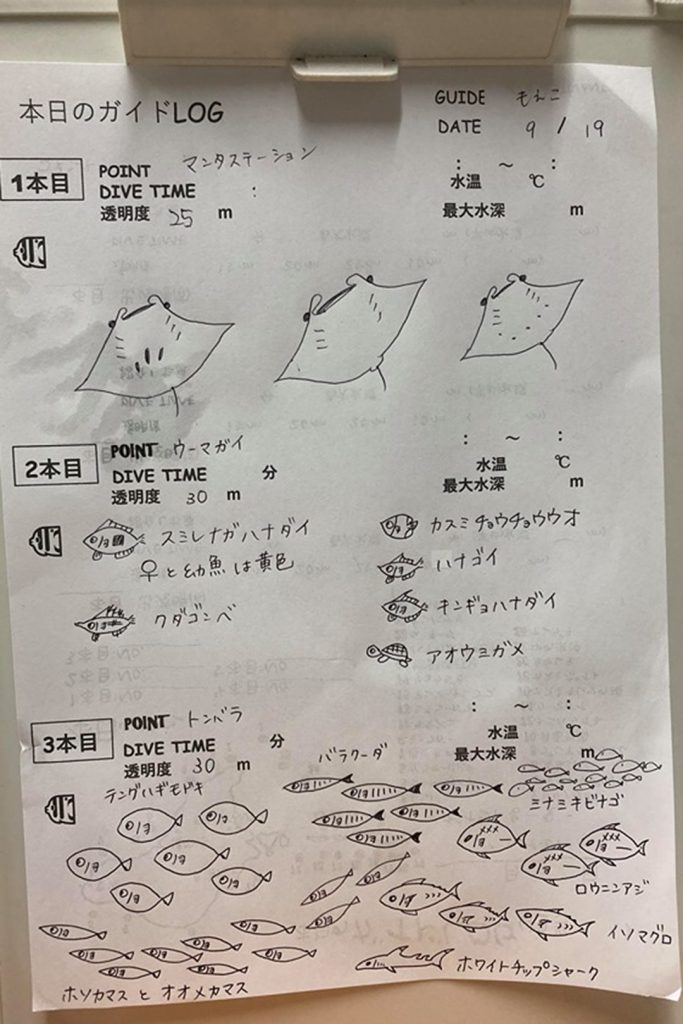 本日のガイドLOG
GUIDE もえこ
DATE 9 / 19
1本目
POINT マンタステーション
DIVE TIME :
透明度 25 m
: ～ :
水温 ℃
最大水深 m
2本目
POINT ウーマガイ
DIVE TIME 分
透明度 30 m
: ～ :
水温 ℃
最大水深 m
スミレナガハナダイ
♀と幼魚は黄色
クダゴンベ
カスミチョウチョウウオ
ハナゴイ
キンギョハナダイ
アオウミガメ
3本目
POINT トンバラ
DIVE TIME 分
透明度 30 m
: ～ :
水温 ℃
最大水深 m
テングハギモドキ
バラクーダ
ミナミキビナゴ
ロウニンアジ
イソマグロ
ホワイトチップシャーク
ホソカマスとオオメカマス